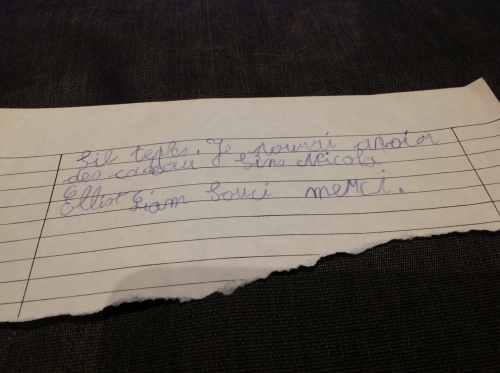 Sil teplès. Je pourai avoior
des cadeau Sins Nicola
Elliot Liam Souci merci.